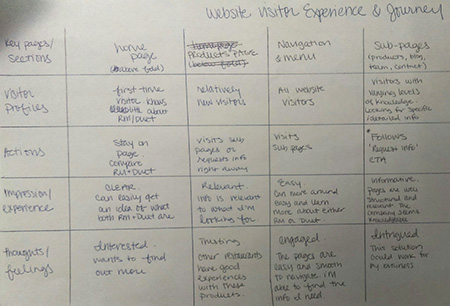 Website Visitor Experience & Journey
Key pages/
Sections
home
page
(above fold)
homepage
Products page
(below fold)
Navigation
& menu
Sub-pages
(products, blog,
team, contact)
Visitor
Profiles
first-time
visitor knows
little about
RM/Duet
Relatively
new visitors
All website
visitors
Visitors with
varying levels
of knowledge
looking for specific
/detailed info
Actions
Stay on
page
compare
RM + Duet
visits sub
pages or
requests info
right away
visits
Sub pages
Follows
"Request info"
CTA
Impression/
experience
Clear
can easily get
an idea of what
both RM + Duet are
Relevant
info is relevant
to what I'm
looking for.
Easy
can move around
easy and learn
more about either
RM or Duet
Informative
pages are well
structured and
relevant. The
company seems
Thoughts/
feelings
Interested.
wants to find
out more
Trusting
other restaurants
have good
experiences
with these
products.
engaged
The pages are
easy and smooth
to navigate I'm
able to find the
info I need
Intrigued
This solution
could work for
my business